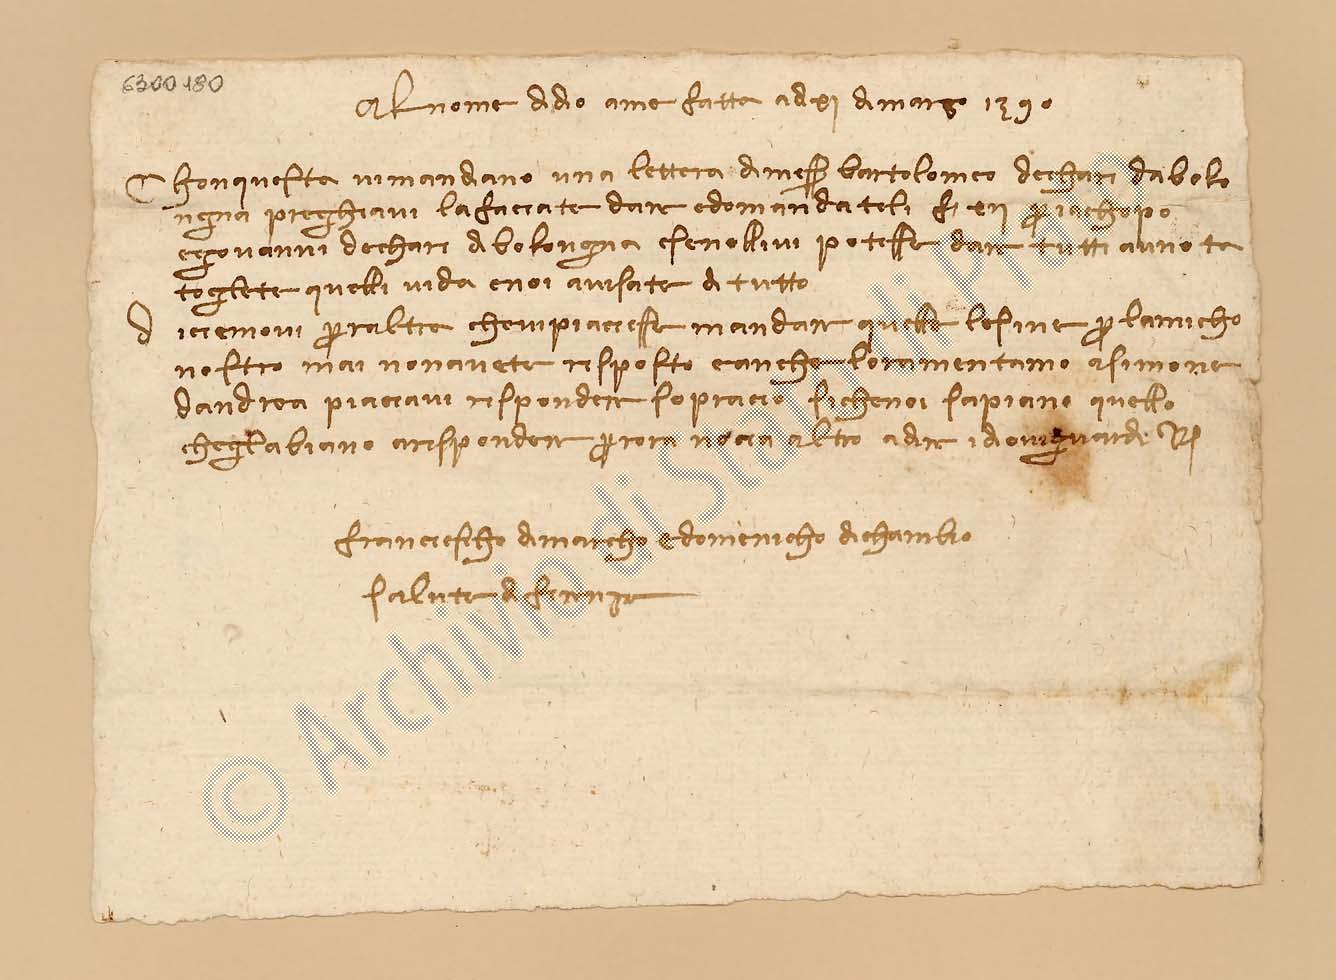 6300180
Al nome di dio ame fatta adi xi dimarzo 1390
Chonquesta vimandiano una lettera dimess bartolomeo dechari dabolo
ngna preghiavi lafacciate dare edomandateli pro iachopo
egovanni dechari dibolongna esenollivi potesse dare tutti avno ta
togliete quelli vida enoi avisate di tutto
diciemovi pro laltra chevipiaciesse mandare quelle lesine pro lamicho
nostro mai nonavete risposto eanche loramentamo asimone
dandrea piacciavi rispondere sopraciò sichenoi sapiano quello
cheglabiano arispondere pro rora altro adire idiovighuardi
franciescho dimarcho edomenicho dichambio
salute di firenze
© Archivio di Stato di Prato